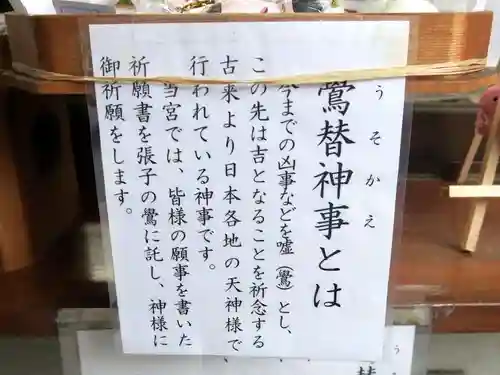 うそかえ
鶯替神事とは
今までの凶事などを嘘（鶯）とし、
この先は吉となることを祈念する
古来より日本各地の天神様で
行われている神事です。
当宮では、皆様の願事を書いた
祈願書を張子の鶯に託し、神様に
御祈願をします。
う
替